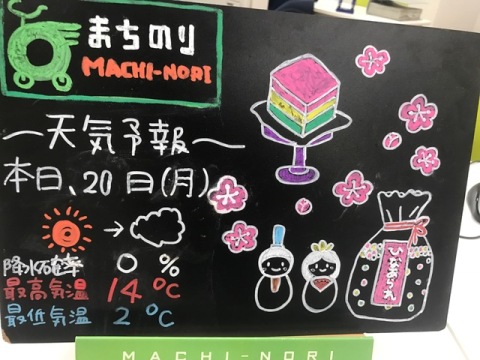 まちのり
MACHI-NORI
～天気予報～
本日、20日(月)
→
降水確率 0 %
最高気温 14℃
最低気温 2℃
ひなあられ
MACHI-NORI